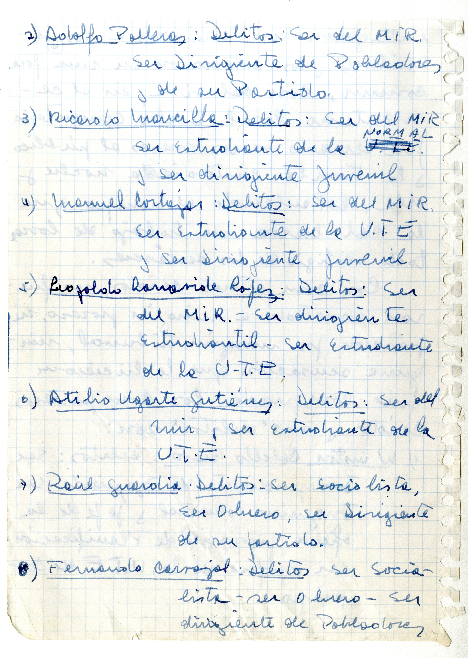 2) Adolfo Palleras: Delitos: Ser del MIR.
Ser Dirigiente de Pobladores
y de su Partido.
3) Ricardo Mancilla: Delitos: Ser del MIR
NORMAL
Ser Estudiante de la
y ser dirigiente Juvenil
4) Manuel Cortazar: Delitos: Ser del MIR.
Ser Estudiante de la U.T.E
y Ser Dirigiente Juvenil
5) Leopoldo Larravide López: Delitos: Ser
del MIR. - Ser dirigiente
Estudiantil - Ser Estudiante
de la U-T-E,
6) Atilio Ugarte Gutiérrez: Delitos: Ser del
Mir, Ser Estudiante de la
U.T.E.
7) Raúl Guardia. Delitos: Ser Socialista,
Ser Obrero, ser Dirigiente
de su partido.
8) Fernando Carvajal: Delitos: Ser Socia-
lista - ser Obrero - Ser
dirigiente de Pobladores